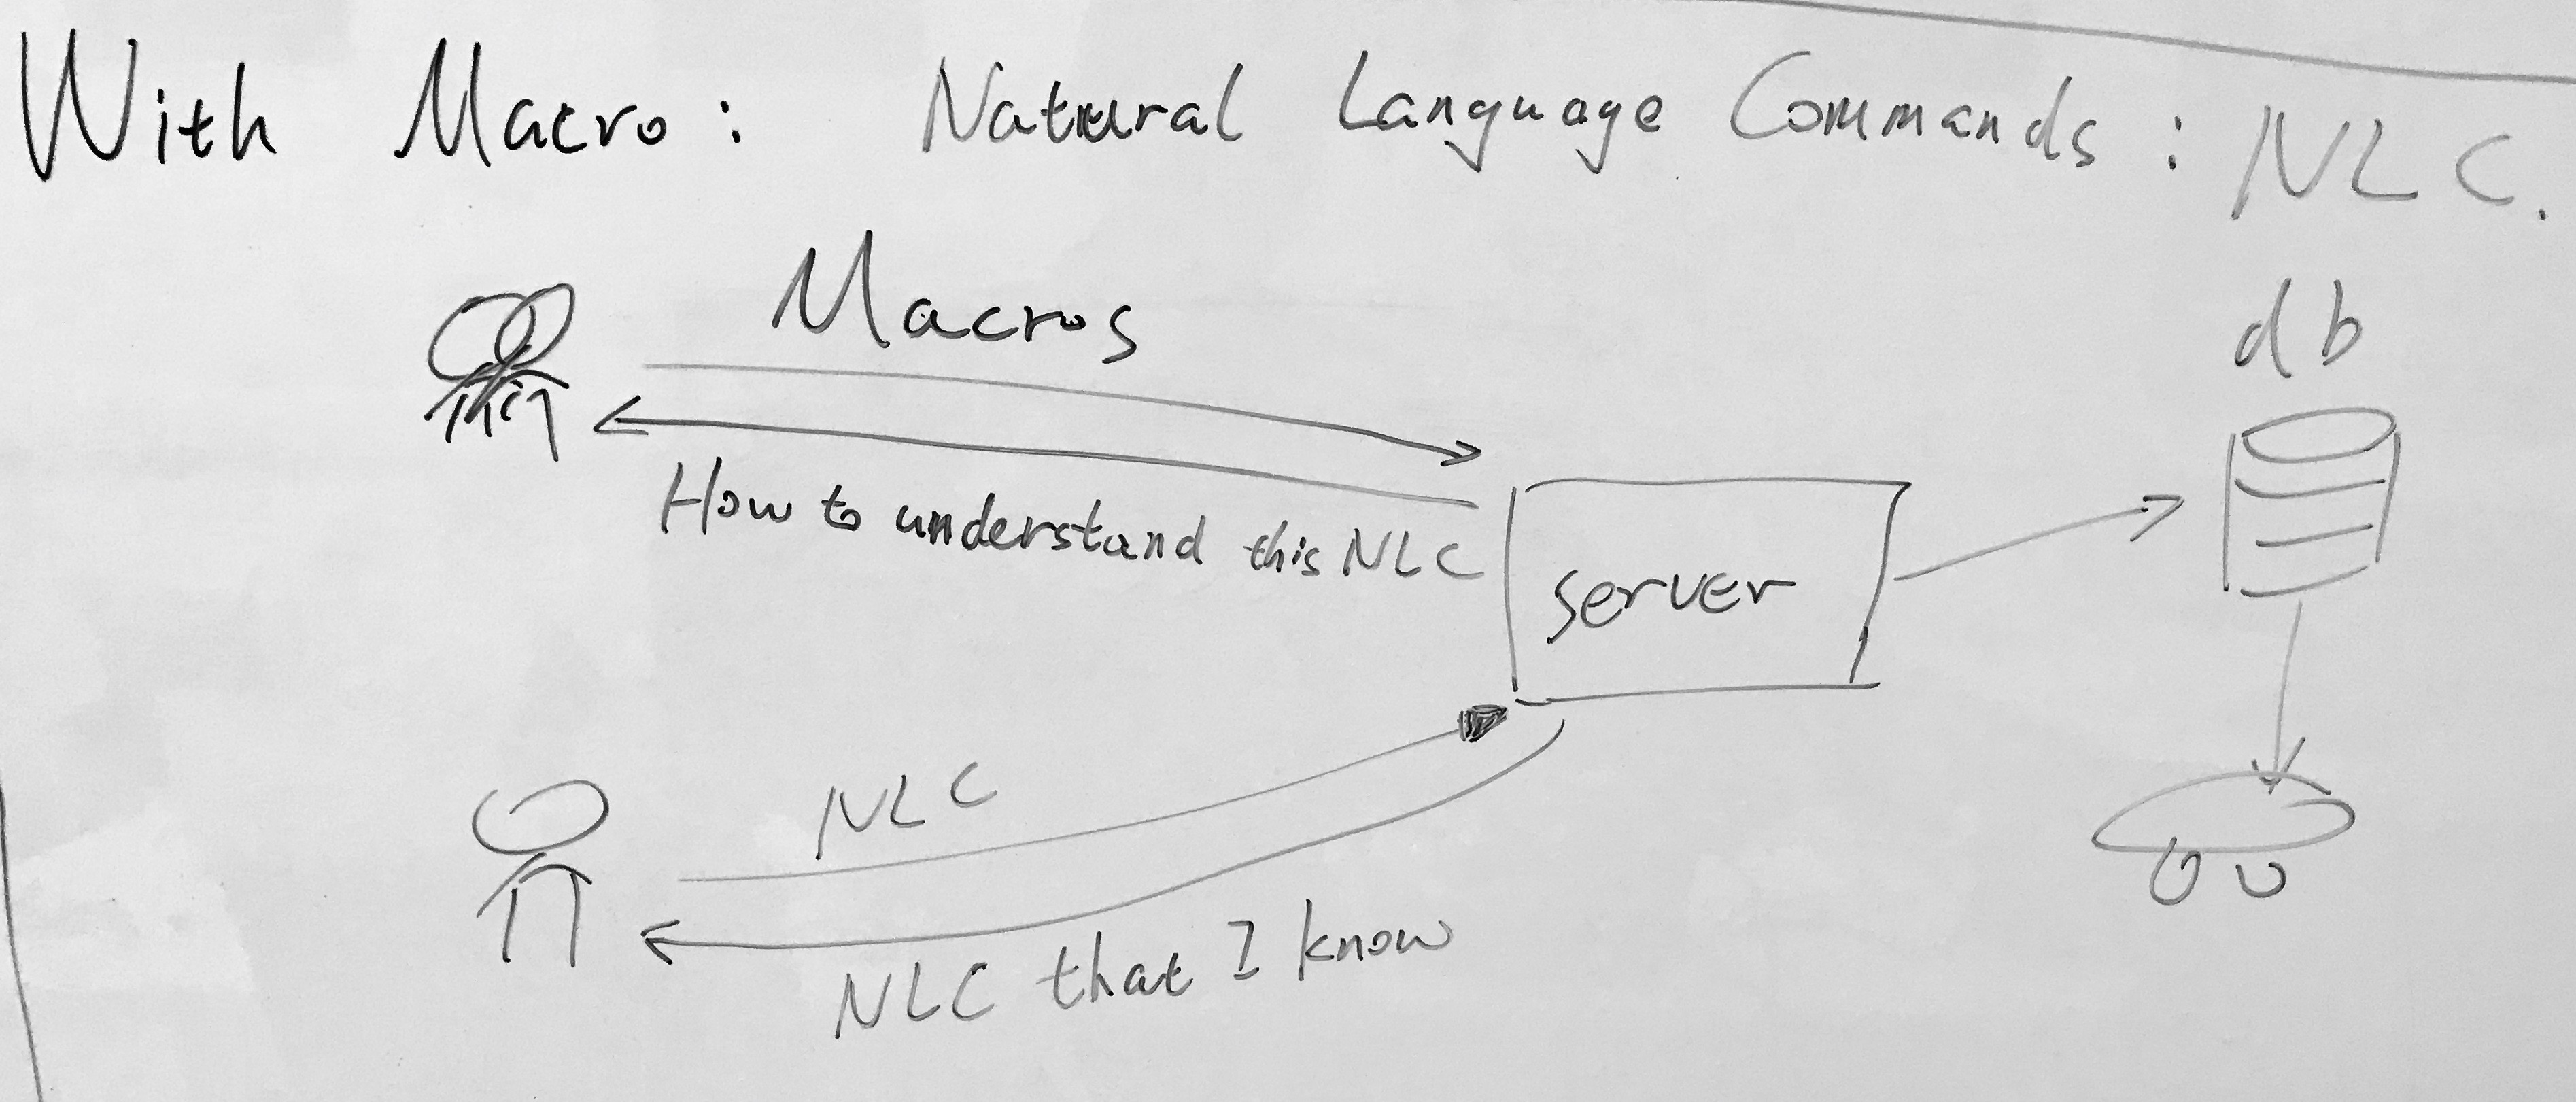 With Macro: Natural Language Commands: NLC.
Macros
db
How to understand this NLC
server
NLC
NLC that I know